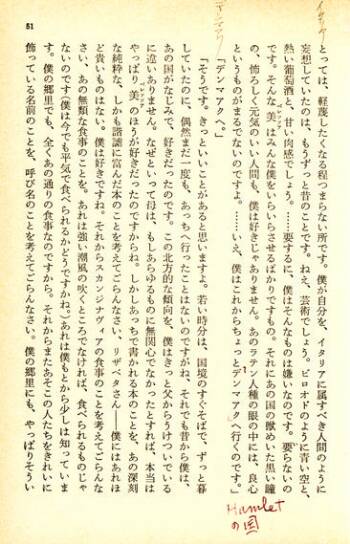 イタリヤ
とっては、軽蔑したくなる程つまらない所です。僕が自分を、イタリアに属すべき人間のように
妄想していたのは、もうずっと昔のことです。ねえ、芸術でしょう。ビロオドのように青い空と、
熱い葡萄酒と、甘い肉感でしょう。……要するに、僕はそんなものは嫌いなのです。要らないの
です。そんな『美』はみんな僕をいらいらさせるばかりですもの。それにあの国の獣めいた黒い瞳
の、怖ろしく元気のいい人間も、僕は好きじゃありません。あのラテン人種の眼の中には、良心
というものがまるでないのですよ。……いいえ、僕はこれからちょっとデンマアクへ行くのです。」
デンマアク
「デンマアクへ。」
「そうです。きっといいことがあると思いますよ。若い時分は、国境のすぐそばで、ずっと暮
していたのに、偶然まだ一度も、あっちへ行ったことはないのですがね、それでも昔から僕は、
あの国がなじみで、好きだったのです。この北方的な傾向を、僕はきっと父からうけついでいる
に違いありません。なぜといって母は、もしあらゆるものに無関心でなかったとすれば、本当は
やっぱり『美』のほうが好きだったのですからね。しかしあっちで書かれる本のことを、あの深刻
な純粋な、しかも諧謔に富んだ本のことを考えてごらんなさい、リザベタさん――僕にはあれほ
ど貴いものはない。僕は好きですね。それからスカンジナヴィアの食事のことを考えてごらんな
さい、あの無類な食事のことを。あれは強い潮風の吹くところでなければ、食べられるものじゃ
ないのです(僕は今でも平気で食べられるかどうですかね。)あれは僕もとから少しは知っていま
す。僕の郷里でも、全くあの通りの食事なのですから。それからまたあそこの人たちをきれいに
飾っている名前のことを、呼び名のことを考えてごらんなさい。僕の郷里にも、やっぱりそうい
Hamlet
の国
51